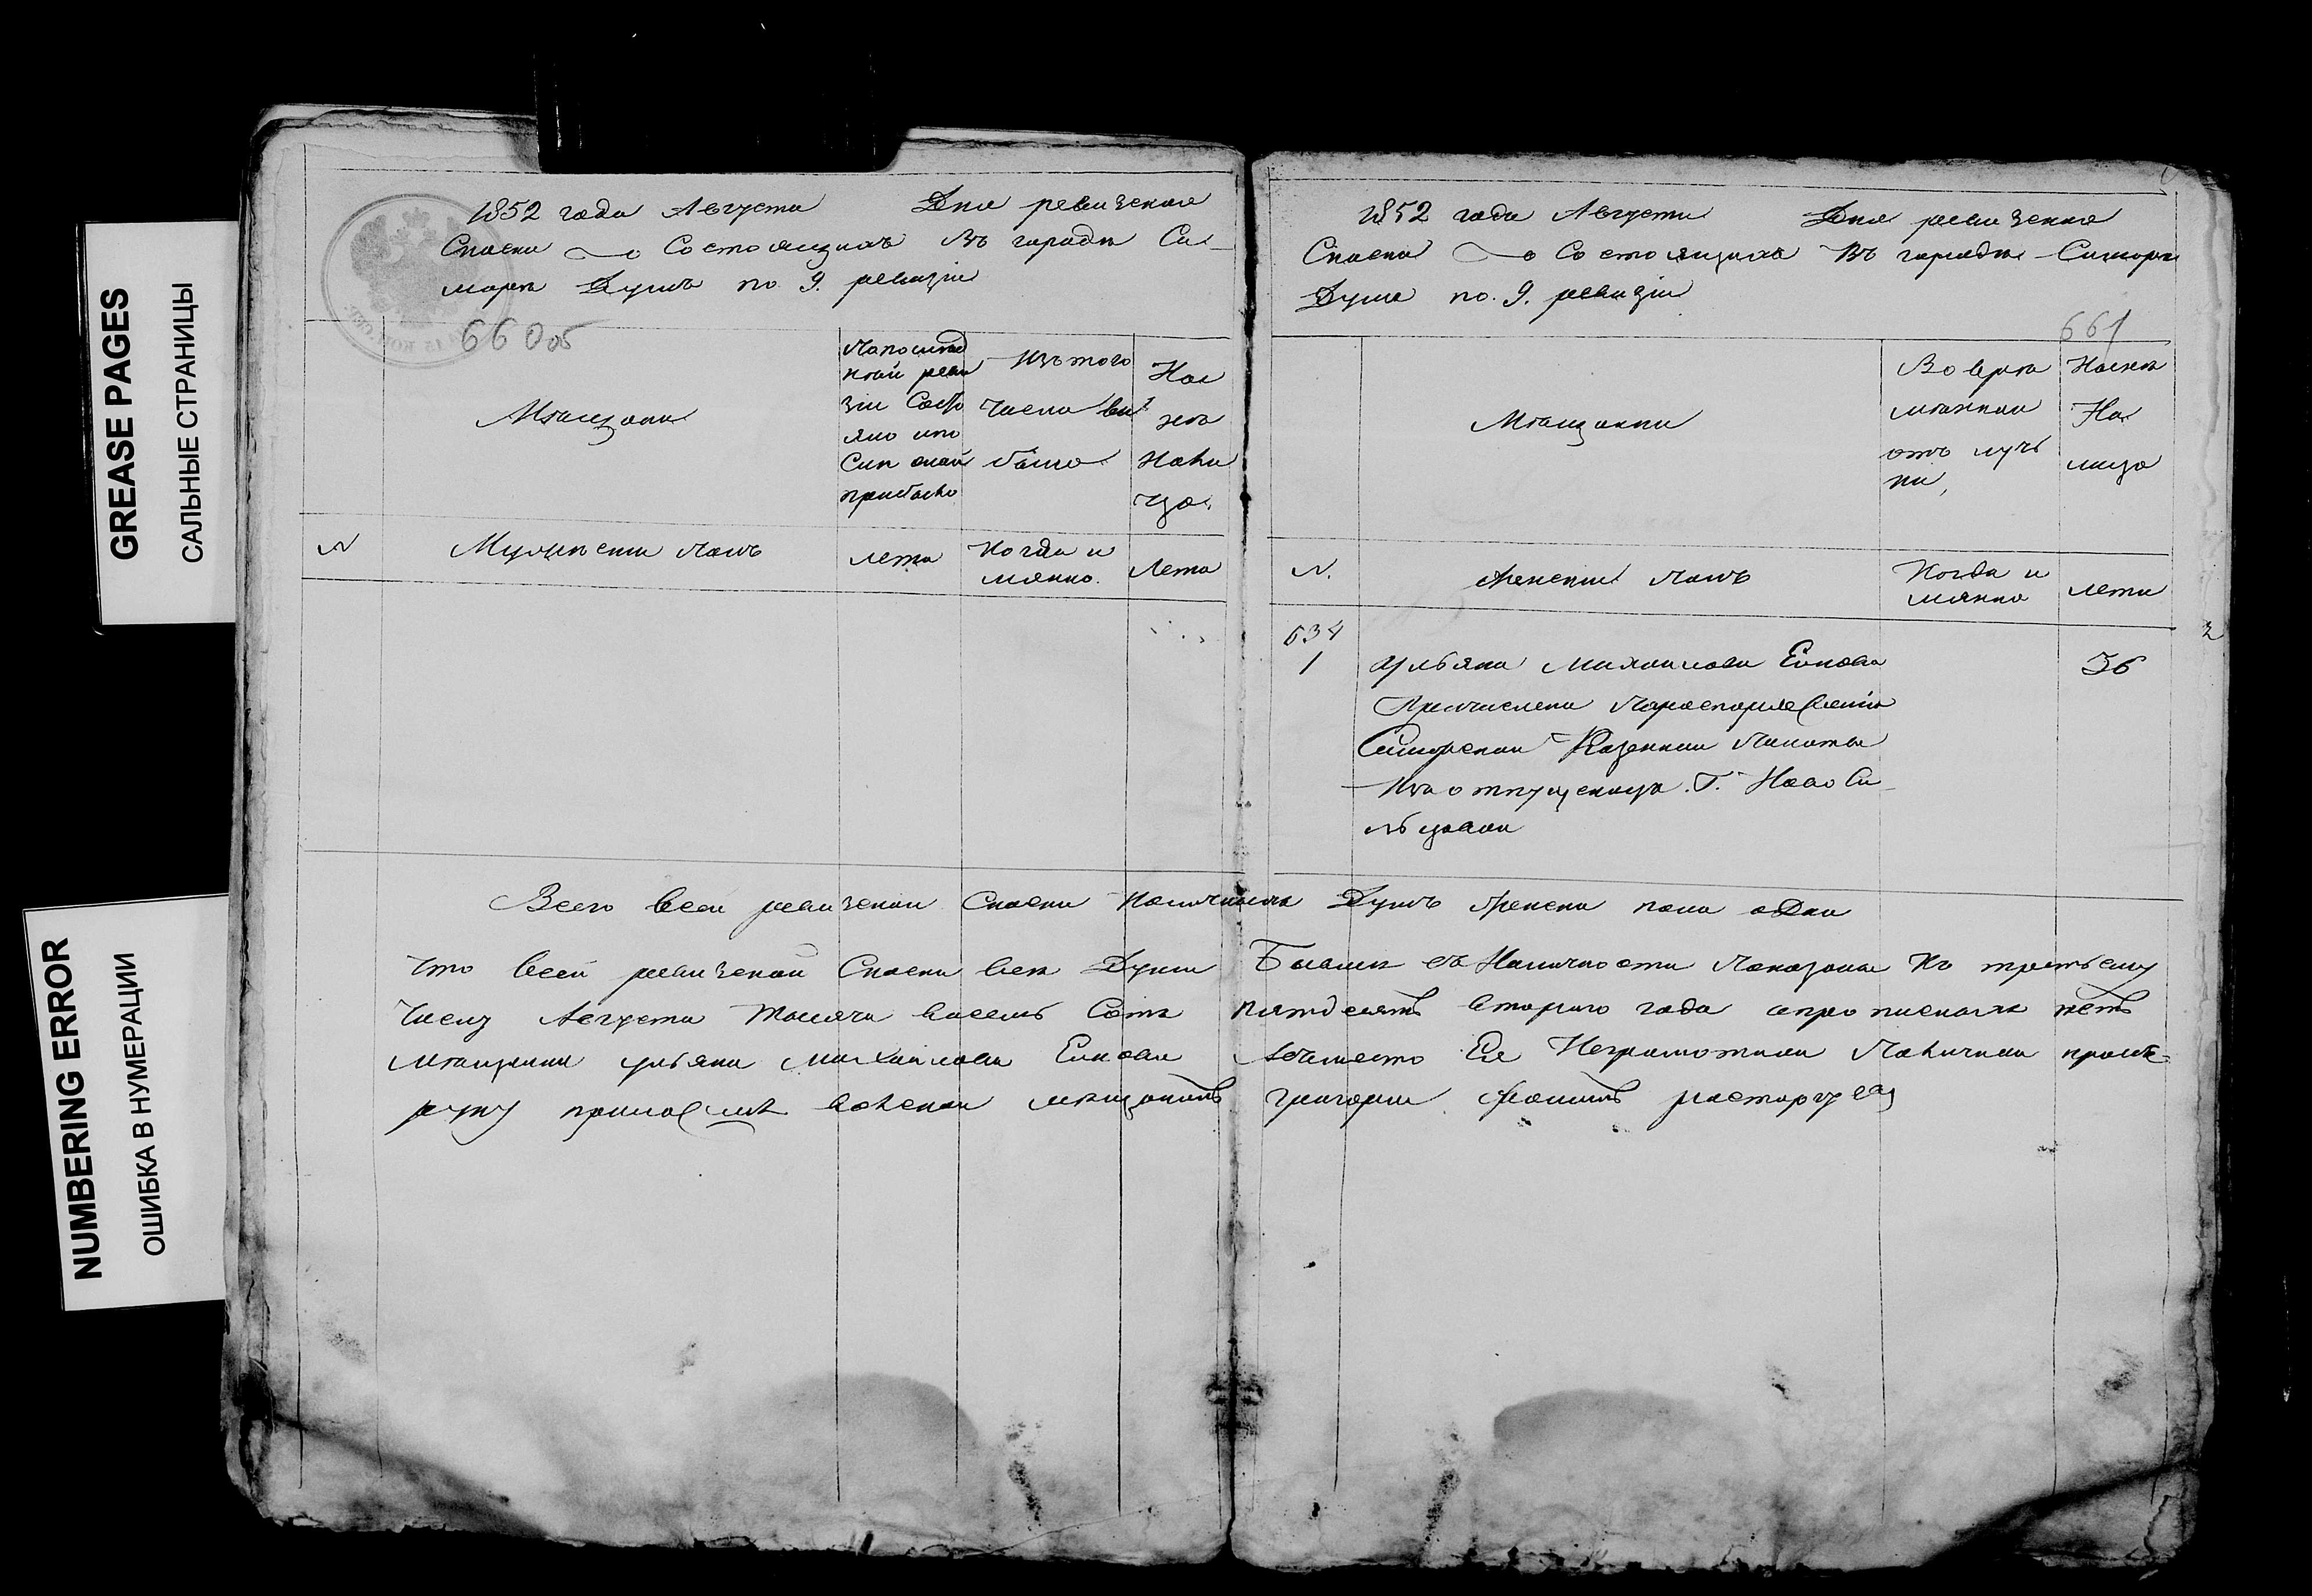 GREASE PAGES
САЛЬНЫЕ СТРАНИЦЫ
NUMBERING ERROR
ОШИБКА В НУМЕРАЦИИ
1852 года Августа Дня ревизская
Сказка о Состоящихъ Въ городѣ Са-
марѣ Душъ по 9. ревизіи
660об
Мѣщане
По послед
ней реви
зіи Состо
яло или
после оной
прибыло
Изъ того
числа вы
было
Нын
ѣ
На ли
цо.
N
Мужескій полъ
лета
Когда и
имянно.
Лета
1852 года Августа Дня ревизская
Сказка о Состоящихъ Въ городѣ Самарѣ
Душъ по. 9. ревизіи
661
Мѣщанки
Во вре
мянной
отъ луч
ки,
Ныне
На
лицо
N.
Женскій полъ
Когда и
имянно
лета
634
1
Ульяна Михайлова Еикова
36
Причислена По распоряженію
Самарской Казенной Палаты
Изъ отпущеницъ. Г. Ново Си
льцовой
Всего в сей ревизской Сказки Наличныхъ Душъ Женска пола одна
Что в сей ревизской Сказки все Души Бывшия въ Наличности Показаны Къ третьему
Числу Августа Тысяча восемь Сотъ пятдесятъ втораго года и прописныхъ нетъ
мѣщанка ульяна михайлова Еикова а вместо Ея Неграмотной По личной прозьбе
руку приложилъ мещанинъ григорий расторгуев